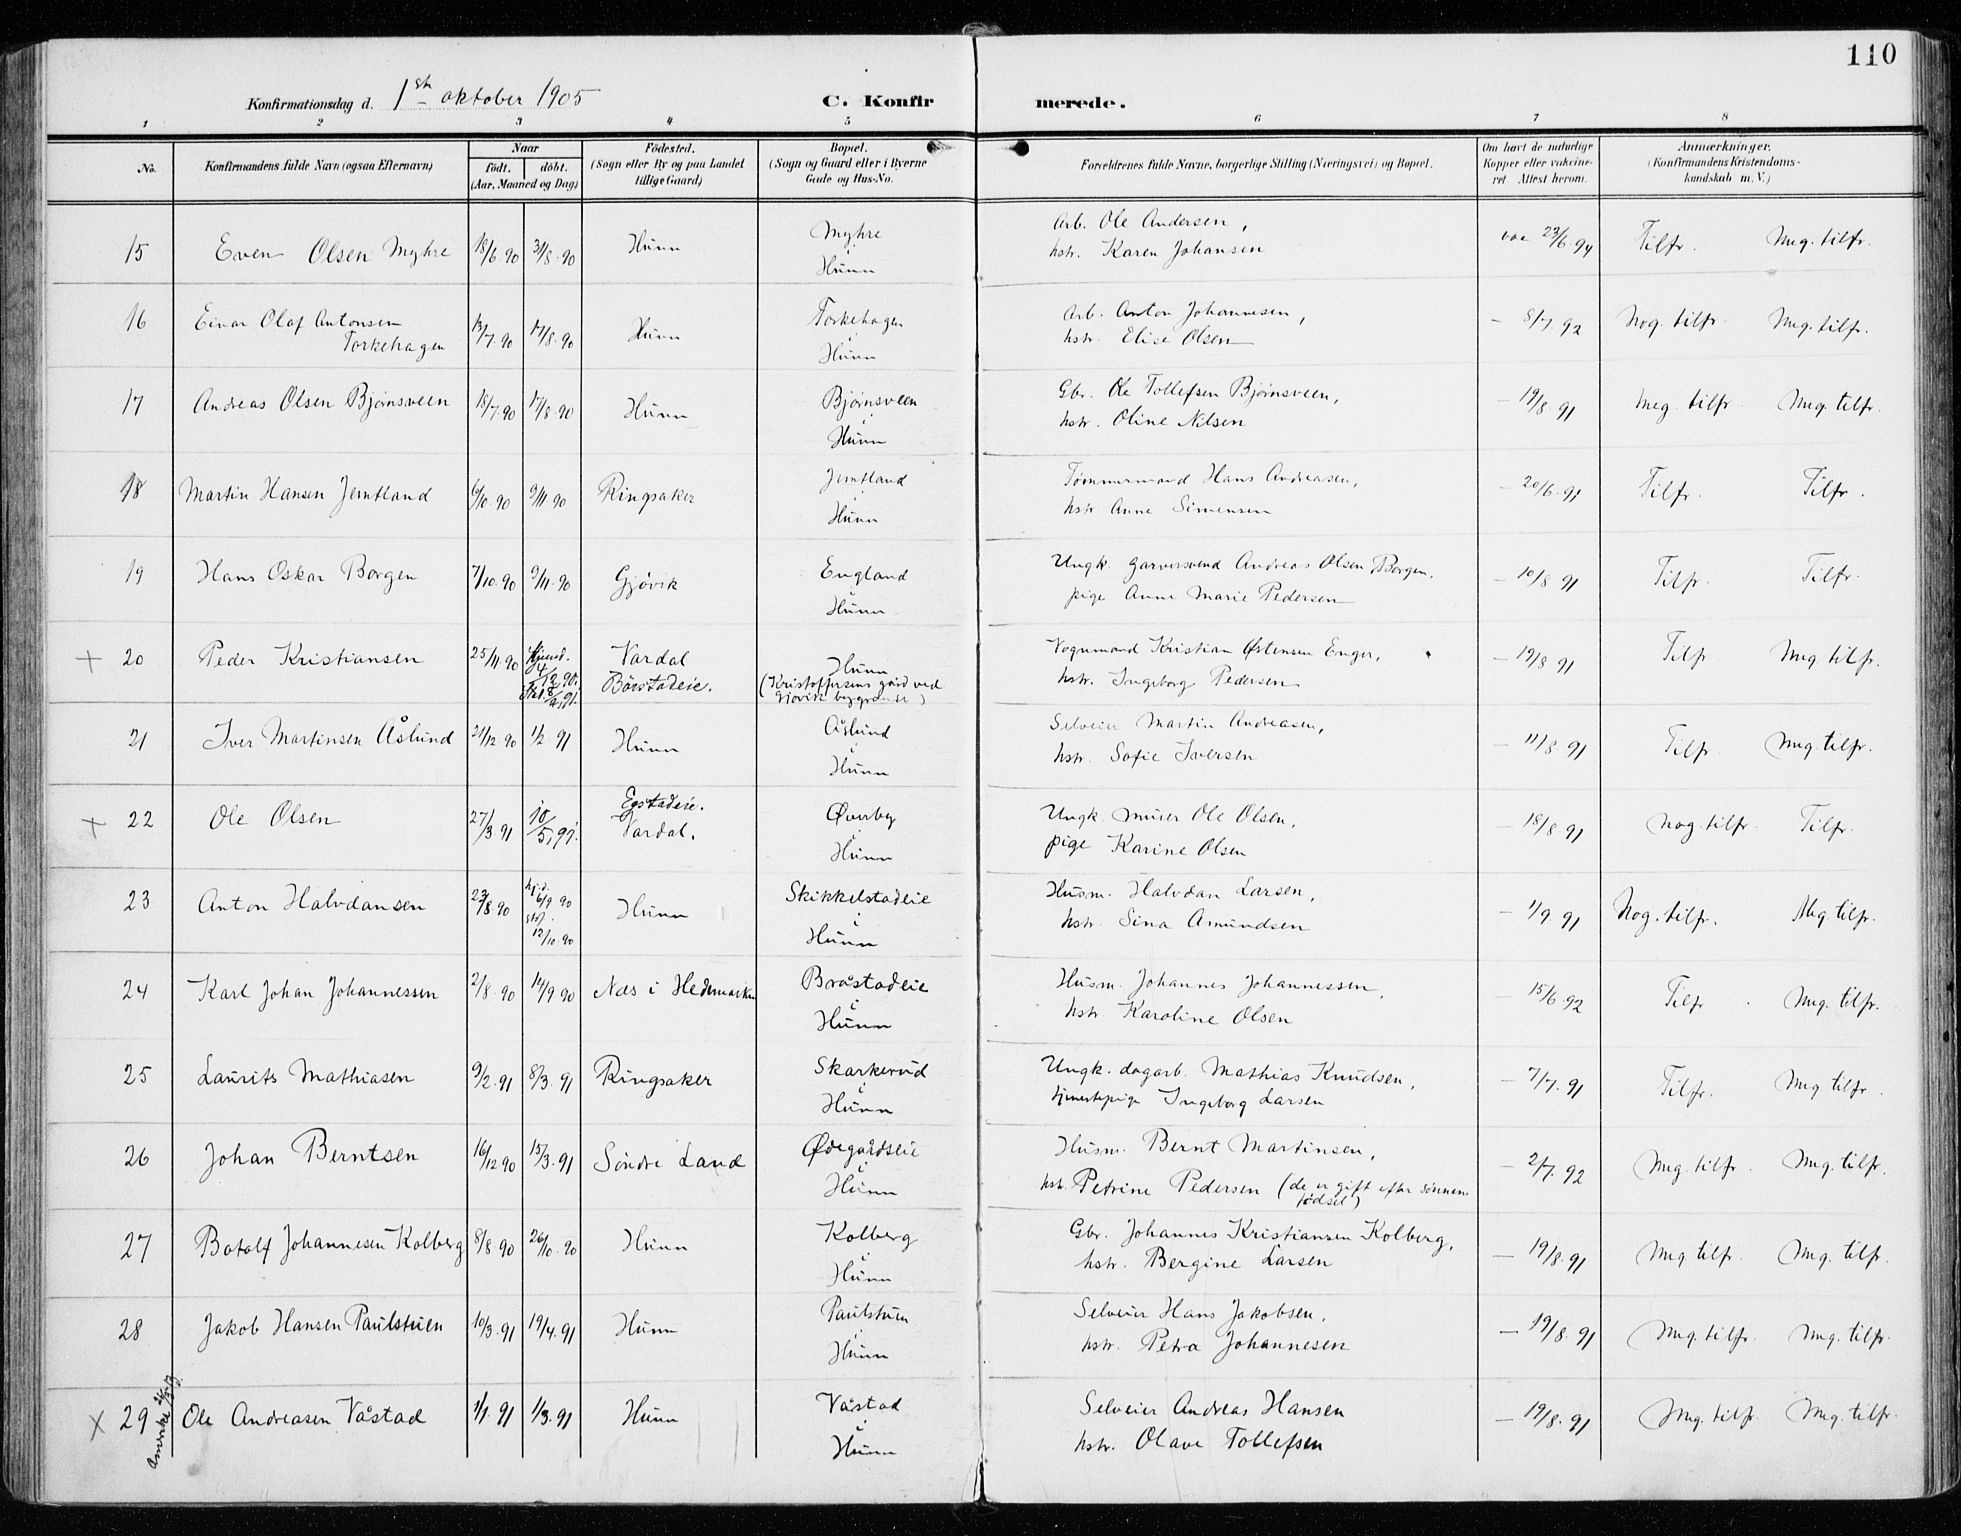 110
Konfirmationsdag d. 1ste oktober 1905 C. Konfirmerede.
1 2 3 4 5 6 7 8
No. Konfirmandens fulde Navn (ogsaa Efternavn) Naar født. døbt. (Aar, Maaned og Dag) Fødested. (Sogn eller By og paa Landet tillige Gaard) Bopæl. (Sogn og Gaard eller i Byerne Gade og Hus-No. Forældrenes fulde Navne, borgerlige Stilling (Næringsvei) og Bopæl. Om havt de naturlige Kopper eller vakcineret Attest herom. Anmærkninger. (Konfirmandens Kristendomskundskab m. V.)
15 Even Olsen Myhre 18/6.90 31/8.90 Hunn Myhre i Hunn Arb. Ole Andersen, hstr. Karen Johansen vac 23/6.94 Tilfr. Meg. tilfr.
16 Einar Olaf Antonsen Torkehagen 13/7.90 17/8.90 Hunn Torkehagen i Hunn Arb. Anton Johannesen, hstr. Elise Olsen — 8/7.92 Nog. tilfr. Meg. tilfr.
17 Andreas Olsen Bjørnsveen 18/7.90 17/8.90 Hunn Bjørnsveen i Hunn Gbr. Ole Tollefsen Bjørnsveen, hstr. Oline Nilsen — 19/8.91 Meg. tilfr. Meg. tilfr.
18 Martin Hansen Jemtland 6/10.90 9/11 90 Ringsaker Jemtland i Hunn Tømmermand Hans Andreasen, hstr. Anne Simensen — 20/6.91 Tilfr. Tilfr.
19 Hans Oskar Borgen 7/10.90 9/11.90 Gjøvik England i Hunn Ungk. garversvend Andreas Olsen Borgen, pige Anne Marie Pedersen — 10/8 91 Tilfr. Tilfr.
+ 20 Peder Kristiansen 25/11.90 Hjemd. 4/12 90. Vardal Børstadeie. Hunn (Kristoffersens gård ved Gjøvik bygrænse) Vognmand Kristian Østensen Enger, hstr. Ingeborg Pedersen — 19/8 91 Tilfr. Meg. tilfr.
21 Iver Martinsen Åslund 21/12 90 1/2 91 Hunn Åslund i Hunn Selveier Martin Andreasen, hstr. Sofie Iversen — 11/8.91 Tilfr. Meg. tilfr.
+ 22 Ole Olsen 27/3 91 10/5.91. Egstadeie. Vardal. Øverby i Hunn Ungk. murer Ole Olsen, pige Karine Olsen — 18/8 91 Nog. tilfr. Tilfr.
23 Anton Halvdansen 23/8.90 hj.d. 6/9 90 stf. 12/10.90 Hunn Skikkelstadeie i Hunn Husm. Halvdan Larsen, hstr. Sina Amundsen — 1/9.91 Nog. tilfr. Meg tilfr.
24 Karl Johan Johannessen 2/8.90 14/9 90 Næs i Hedemarken Bråstadeie i Hunn Husm. Johannes Johannessen, hstr Karoline Olsen — 15/6.92 Tilfr. Meg. tilfr.
25 Laurits Mathiasen 9/2.91 8/3.91 Ringsaker Skarkerud i Hunn Ungk. dagarb. Mathias Knudsen, tjenestepige Ingeborg Larsen — 7/7.91 Tilfr. Meg. tilfr.
26 Johan Berntsen 16/12 90 15/3.91 Søndre Land Ødegårdseie i Hunn Husm. Bernt Martinsen, hstr. Petrine Pedersen (de er gift efter sønnens fødsel) — 2/7.92 Meg. tilfr. Meg. tilfr.
27 Botolf Johannesen Kolberg 8/8 90 26/10.90 Hunn Kolberg i Hunn Gbr. Johannes Kristiansen Kolberg, hstr. Bergine Larsen — 19/8.91 Meg tilfr. Meg. tilfr.
28 Jakob Hansen Paulstuen 10/3.91 19/4.91 Hunn Paulstuen i Hunn Selveier Hans Jakobsen, hstr. Petra Johannesen — 19/8.91 Meg. tilfr. Meg. tilfr.
x 29 Amerika Ole Andreasen Våstad 1/1.91 1/3.91 Hunn Våstad i Hunn Selveier Andreas Hansen hstr. Olave Tollefsen — 19/8.91 Meg. tilfr. Meg. tilfr.